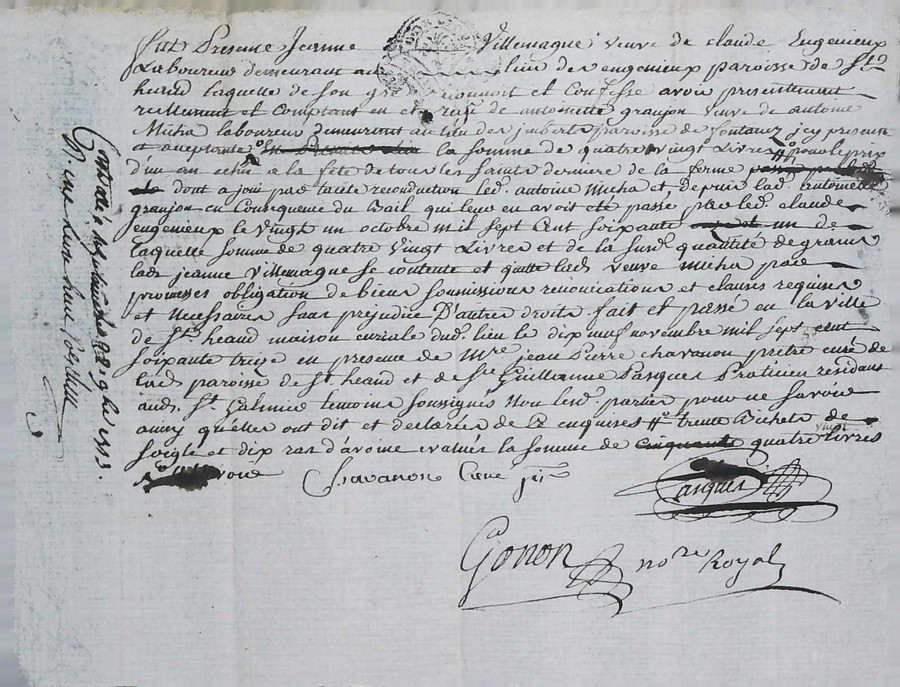 fut Presente Jeanne Villemagne veuve de claude Engenieux
Laboureur demeurant au lieu de engenieux paroisse de St
heand laquelle de son gré reconnoit et Confesse avoir presentement
reellement et Comptant en et reçu de antoinette granjon veuve de antoine
Micha laboureur demeurant au lieu des juberts paroisse de fontanez jcy presente
et acceptante la somme de quatre vingt Livres pour le prix
d'un an echu a la fête de tous les saints derniere de la ferme
dont a joui par tacite reconduction led. antoine micha et, depuis lad. antoinette
granjon en Consequence du Bail qui leur en avoit été passé par led. claude
engenieux le vingt un octobre mil sept Cent soixante un de
laquelle somme de quatre vingt Livres et de la susd. quantité de grains
lad. jeanne villemagne se contente et quitte lad. veuve micha par
promesses obligation de biens soumissions renonciations et clauses requises
et necessaires sans prejudice D'autres droits fait et passé en la ville
de St. heand maison curiale dud. lieu le dix neuf novembre mil sept cent
soixante treize en presence de Mre jean Pierre chavanon pretre curé de
lad. paroisse de St. heand et de Sr Guillaume Pasques Praticien residant
aud. St. Galmier temoins soussignés non les d. parties pour ne savoir
ainsy qu'elles ont dit et declarées de ce enquises # trente Bichets de
soigle et dix ras d'avoine evalués la somme de cinquante quatre livres
vingt
Chavanon Curé
Pasques
Gonon nore Royal
Contrôlé à